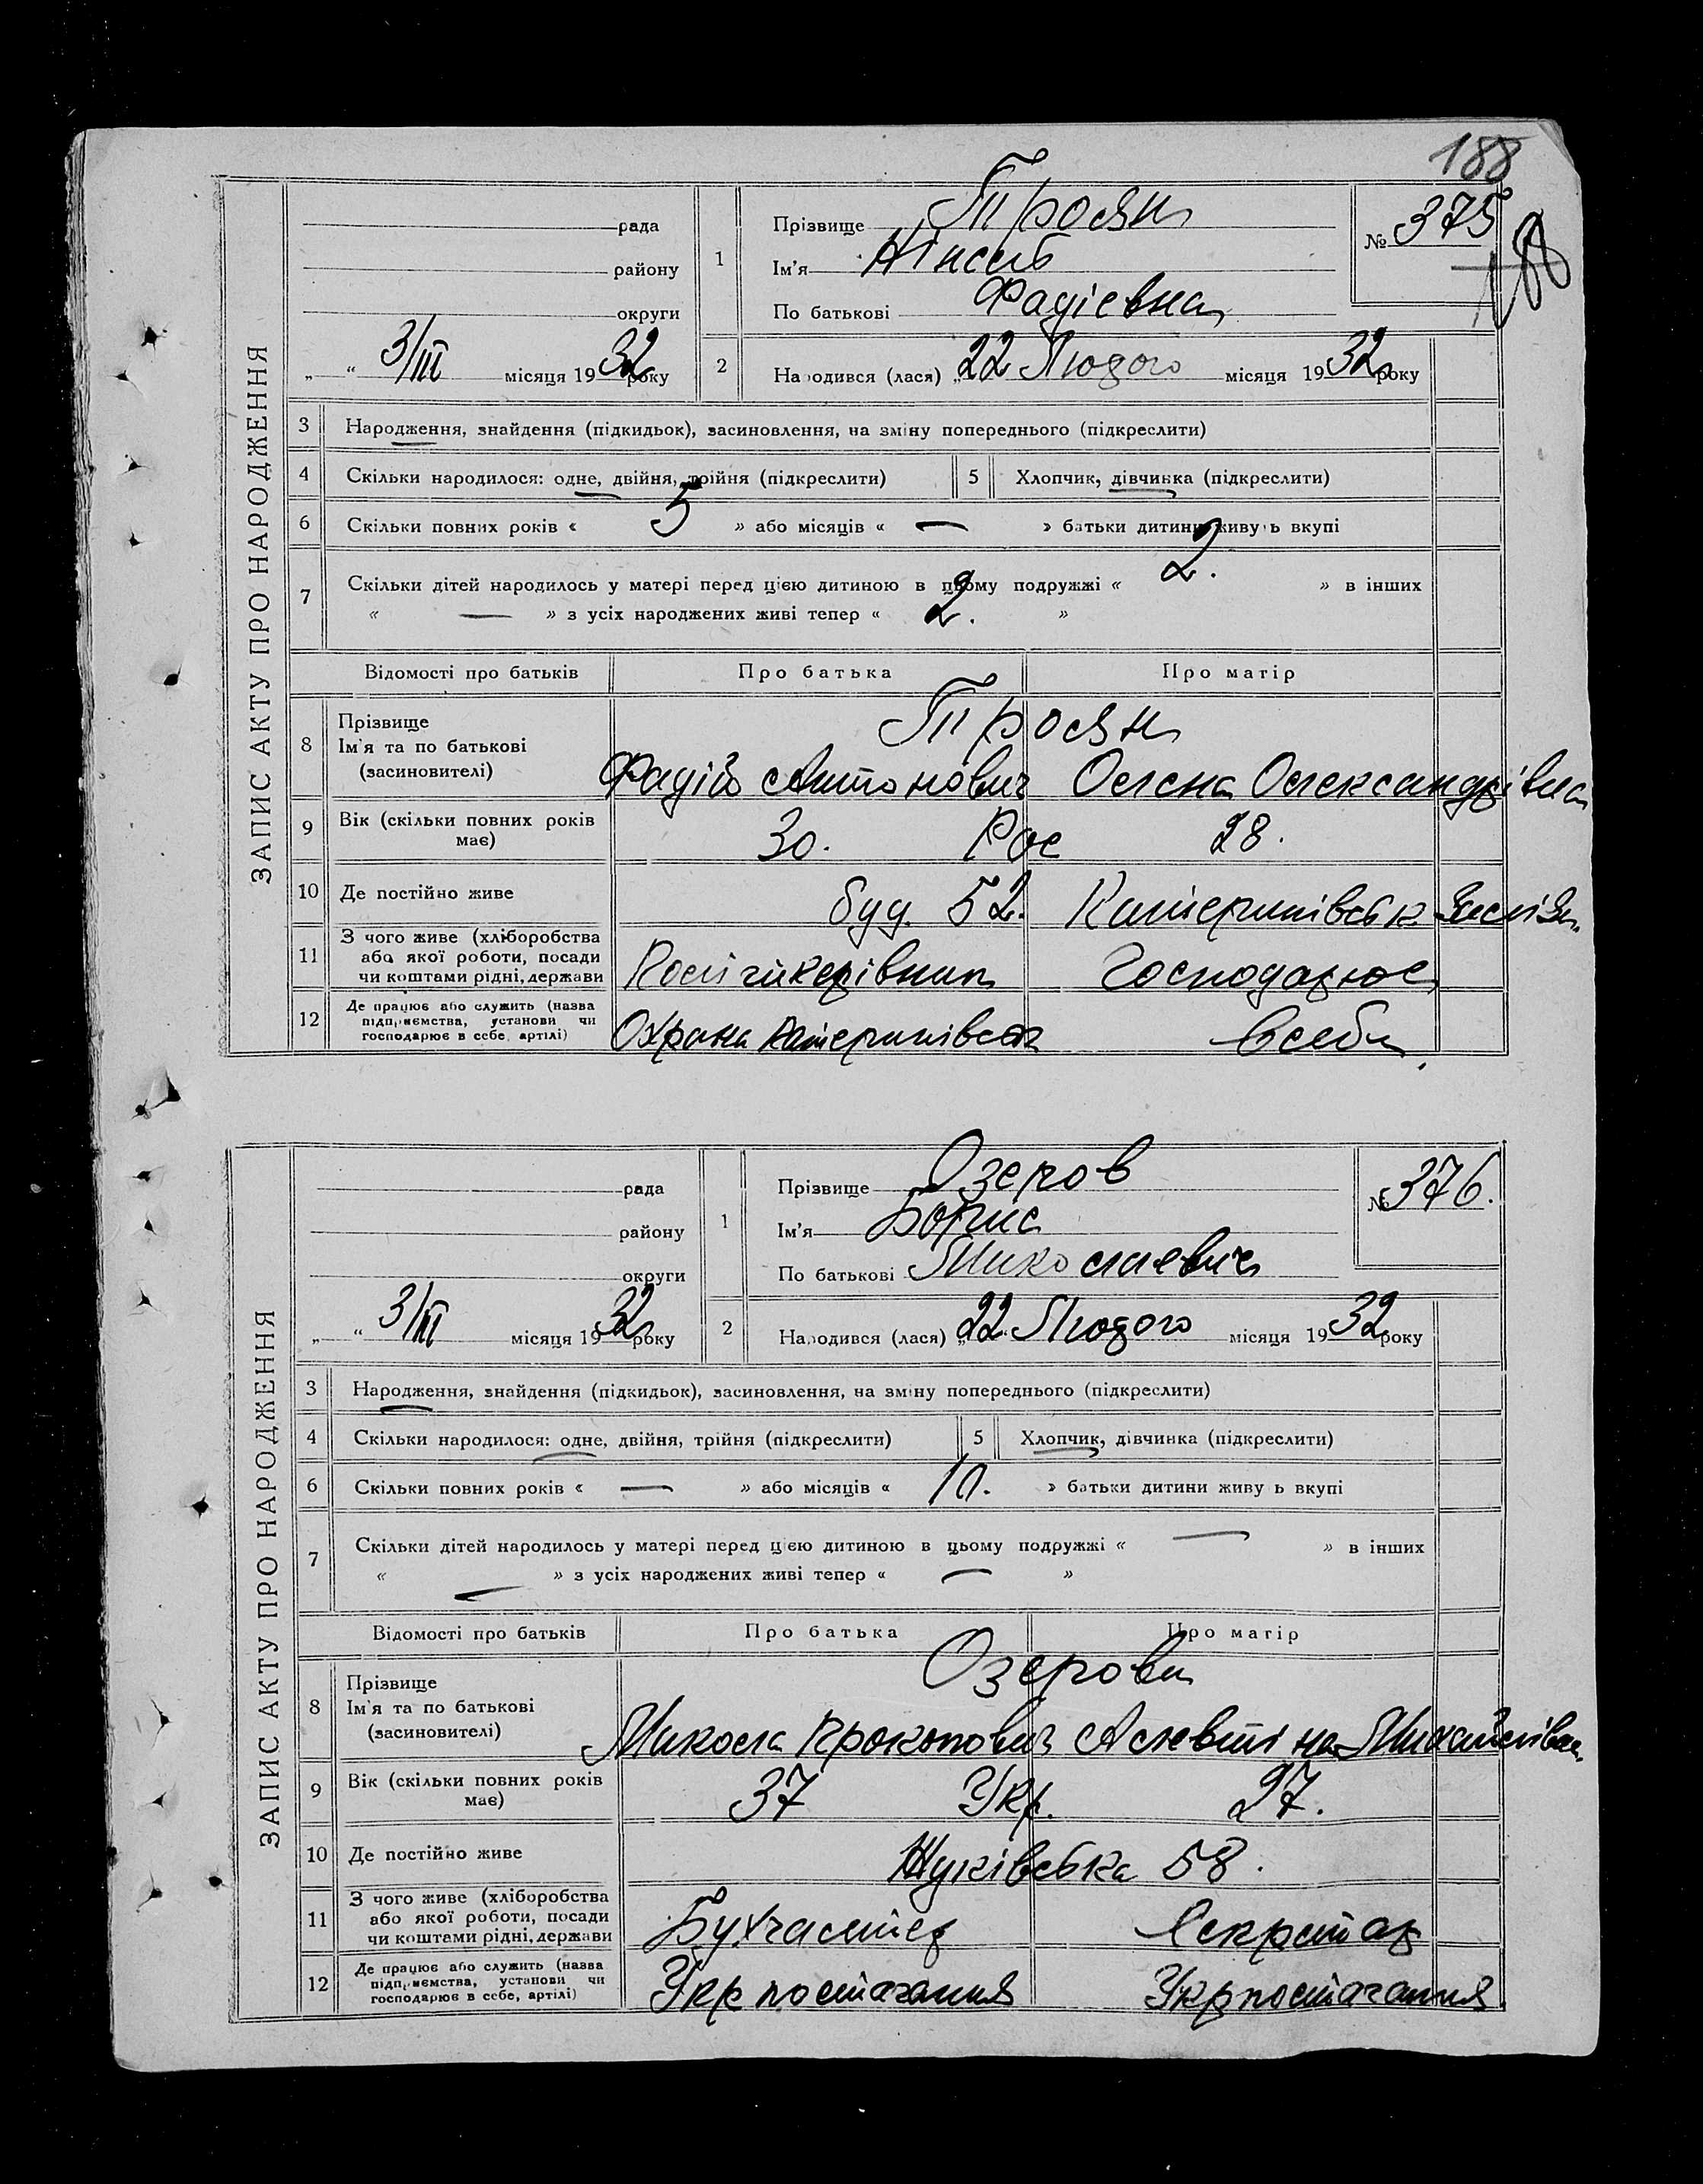 188
ЗАПИС АКТУ ПРО НАРОДЖЕННЯ
рада
району
округи
„ “ 3/III місяця 1932 року
1
Прізвище Троян
Ім'я Нінель
По батькові Фадіевна
№ 375
188
2 Народився (лася) „22 Лютого місяця 1932 року
3 Народження, знайдення (підкидьок), засиновлення, на зміну попереднього (підкреслити)
4 Скільки народилося: одне, двійня, трійня (підкреслити) 5 Хлопчик, дівчинка (підкреслити)
6 Скільки повних років « 5 » або місяців « — » батьки дитини живуть вкупі
7 Скільки дітей народилось у матері перед цією дитиною в цьому подружжі « 2. » в інших
« — » з усіх народжених живі тепер « 2. »
Відомості про батьків Про батька Про матір
8 Прізвище
Ім'я та по батькові
(засиновителі)
Троян
Фадій Антонович Олена Олександрівна
9 Вік (скільки повних років має) 30. Рос 28.
10 Де постійно живе буд. 52. Катеринівськ
11 З чого живе (хліборобства або якої роботи, посади чи коштами рідні, держави Господарює
12 Де працює або служить (назва підприємства, установи чи господарює в себе, артілі) Охрана в себе
ЗАПИС АКТУ ПРО НАРОДЖЕННЯ
рада
району
округи
„ “ 3/III місяця 1932 року
1
Прізвище Озеров
Ім'я Борис
По батькові Миколаевич
№ 376.
2 Народився (лася) „22 Лютого місяця 1932 року
3 Народження, знайдення (підкидьок), засиновлення, на зміну попереднього (підкреслити)
4 Скільки народилося: одне, двійня, трійня (підкреслити) 5 Хлопчик, дівчинка (підкреслити)
6 Скільки повних років « — » або місяців « 10. » батьки дитини живуть вкупі
7 Скільки дітей народилось у матері перед цією дитиною в цьому подружжі « — » в інших
« — » з усіх народжених живі тепер « — »
Відомості про батьків Про батька Про матір
8 Прізвище
Ім'я та по батькові
(засиновителі)
Озерови
Микола Прокопович Алевтіна Михайлівна
9 Вік (скільки повних років має) 37 Укр. 27.
10 Де постійно живе Жуківська 58.
11 З чого живе (хліборобства або якої роботи, посади чи коштами рідні, держави Бухгалтер Секретар
12 Де працює або служить (назва підприємства, установи чи господарює в себе, артілі) Укрпостачання Укрпостачання.